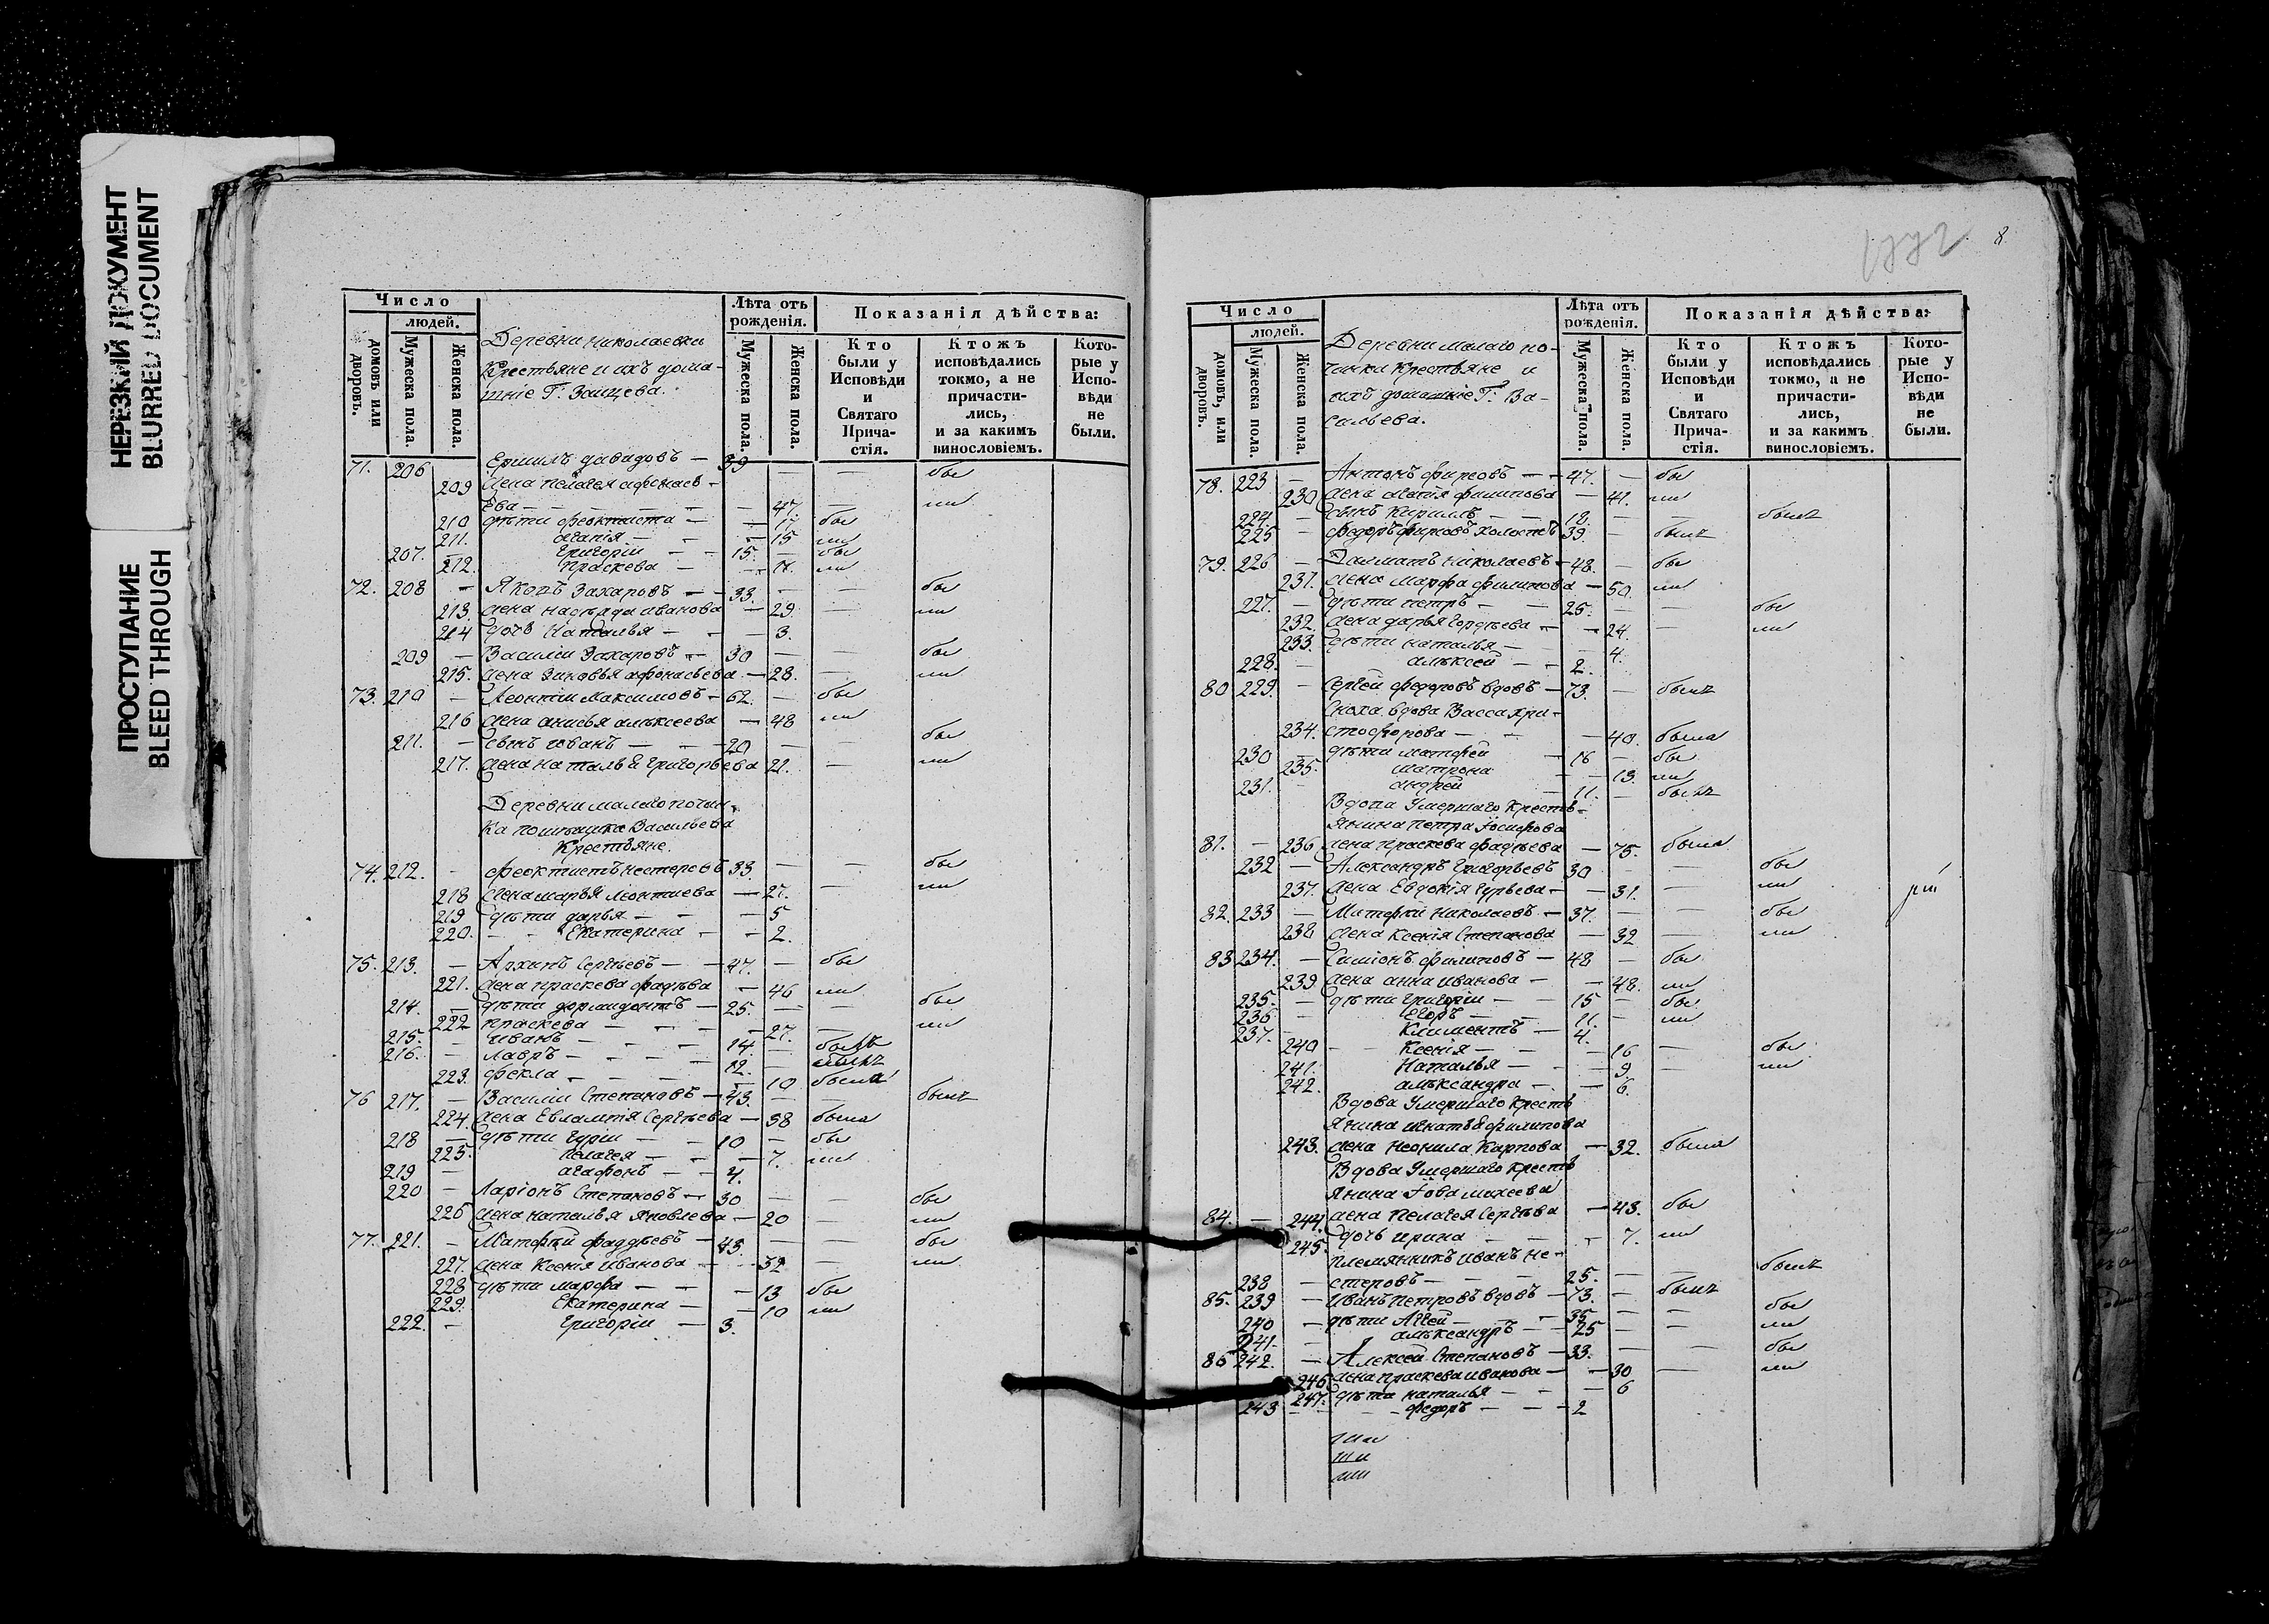 НЕРЕЗКИЙ ДОКУМЕНТ
BLURRED DOCUMENT
ПРОСТУПАНИЕ
BLEED THROUGH
Число
людей.
домовъ или дворовъ.
Мужеска пола.
Женска пола.
Деревни Николаевки
Крестьяне и ихъ дома-
шніе Г: Заицева.
Лѣта отъ рожденія.
Мужеска пола.
Женска пола.
Показанія дѣйства:
Кто были у Исповѣди и Святаго Прича-стія.
Ктожъ исповѣдались токмо, а не причасти-лись, и за какимъ винословіемъ.
Кото-рые у Испо-вѣди не были.
71. 206 Ермилъ Давидовъ — 39 — — бы
209 Жена Пелагея Афонась-
ева — — 47. — ли
210 дѣти Феоктиста — 17. бы
211. Агапія — 15 ли
207. Григоріи — 15. — бы
212. Праскева — 11. ли
72. 208 — Яковъ Захаровъ — 33. — — бы
213. Жена Надѣжда Иванова — 29 — ли
214 дочь Наталья — 3.
209 — Василіи Захаровъ — 30 — — бы
215. Жена Зиновья Афонасьева — 28. — ли
73. 210 — Леонтіи Максимовъ — 62. — бы
216 Жена Анисья Алексеева — 48 ли
211. — сынъ Иванъ — 20 — — бы
217. Жена Наталья Григорьева 21. — ли
Деревни малаго почин-
ка помѣщика Васильева
Крестьяне.
74. 212. — Феоктистъ Нестеровъ 33. — — бы
218 Жена Марья Леонтиева — 27. — ли
219 дѣти Дарья — 5
220. — Екатерина — 2.
75. 213. — Архипъ Сергѣевъ — 47. — бы
221. Жена Праскева Фадѣева — 46 ли
214. — дѣти Дормидонтъ — 25. — — бы
222 Праскева — 27. — ли
215. — Иванъ — 14. — былъ
216. — Лавръ — 12. — былъ
223. Фекла — 10 была
76 217. — Василіи Степановъ — 43. — — былъ
224. Жена Евлампія Сергѣева — 38 была
218 — дѣти Гуріи — 10 — бы
225. Пелагея — 7. ли
219 — Агафонъ — 4.
220 — Ларіонъ Степановъ — 30 — — бы
226 Жена Наталья Яковлева — 20 — ли
77. 221. — Матфѣй Фаддѣевъ — 45. — — бы
227. Жена Ксенія Иванова — 32 — ли
228 дѣти Марфа — 13 бы
229. Екатерина — 10 ли
222. — Григоріи — 3.
8
Число
людей.
домовъ, или дворовъ.
Мужеска пола.
Женска пола.
Деревни малаго по-
чинки Крестьяне и
ихъ домашніе Г: Ва-
сильева.
Лѣта отъ рожденія.
Мужеска пола.
Женска пола.
Показанія дѣйства:
Кто были у Исповѣди и Святаго Прича-стія.
Ктожъ исповѣдались токмо, а не причасти-лись, и за какимъ винословіемъ.
Кото-рые у Испо-вѣди не были.
78. 223 — Антонъ Фирсовъ — 47. — бы
230 Жена Агапія Филипова — 41. ли
224. — сынъ Кирилъ — 18. — — былъ
225 — Федоръ Фирсовъ холостъ 39 — былъ
79. 226 — Далматъ Николаевъ — 48. — бы
231. Жена Марфа Филипова — 50 ли
227. — дѣти Петръ — 25. — — бы
232. Жена Дарья Гордѣева — 24. — ли
233. дѣти Наталья — 4.
228. — Алексеи — 2.
80 229. — Сергей Федоровъ вдовъ — 73. — былъ
Сноха вдова Васса Хри-
234. стофорова — 40. была
230 дѣти Матфей — 16 — бы
235. Матрона — 13. ли
231. — Андрей — 11. — былъ
Вдова Умершаго Кресть-
янина Петра Іосифова
81. — 236 Жена Праскева Фадѣева — 75. была
232 — Александръ Григорьевъ 30 — — бы
237. Жена Евдокія Гурьева — 31. — ли
82. 233 — Матфѣй Николаевъ — 37. — — бы
238 Жена Ксенія Степанова — 32 — ли
83 234. — Симіонъ Филиповъ — 48 — бы
239 Жена Анна Иванова — 48. ли
235. — дѣти Григоріи — 15 — бы
236 — Егоръ — 11. — ли
237. — Климентъ — 4.
240 — Ксенія — 16 — бы
241. Наталья — 9 — ли
242. Александра — 6.
Вдова Умершаго Кресть
янина Игнатья Филипова
243. Жена Неонила Карпова — 32. была
Вдова Умершаго Кресть
янина Іова Мокеева
84. — 244. Жена Пелагея Сергѣева — 43. бы
245. дочь Ирина — 7. ли
племянникъ Иванъ Не-
238 — стеровъ — 25. — — былъ
85. 239 — Иванъ Петровъ вдовъ — 73. — былъ
240 — дѣти Аггей — 35 — — бы
241. — Александръ — 25 — — ли
86 242. — Алексей Степановъ — 33. — — бы
246 Жена Праскева Иванова — 30 — ли
247. дѣти Наталья — 6
243 — Федоръ — 2